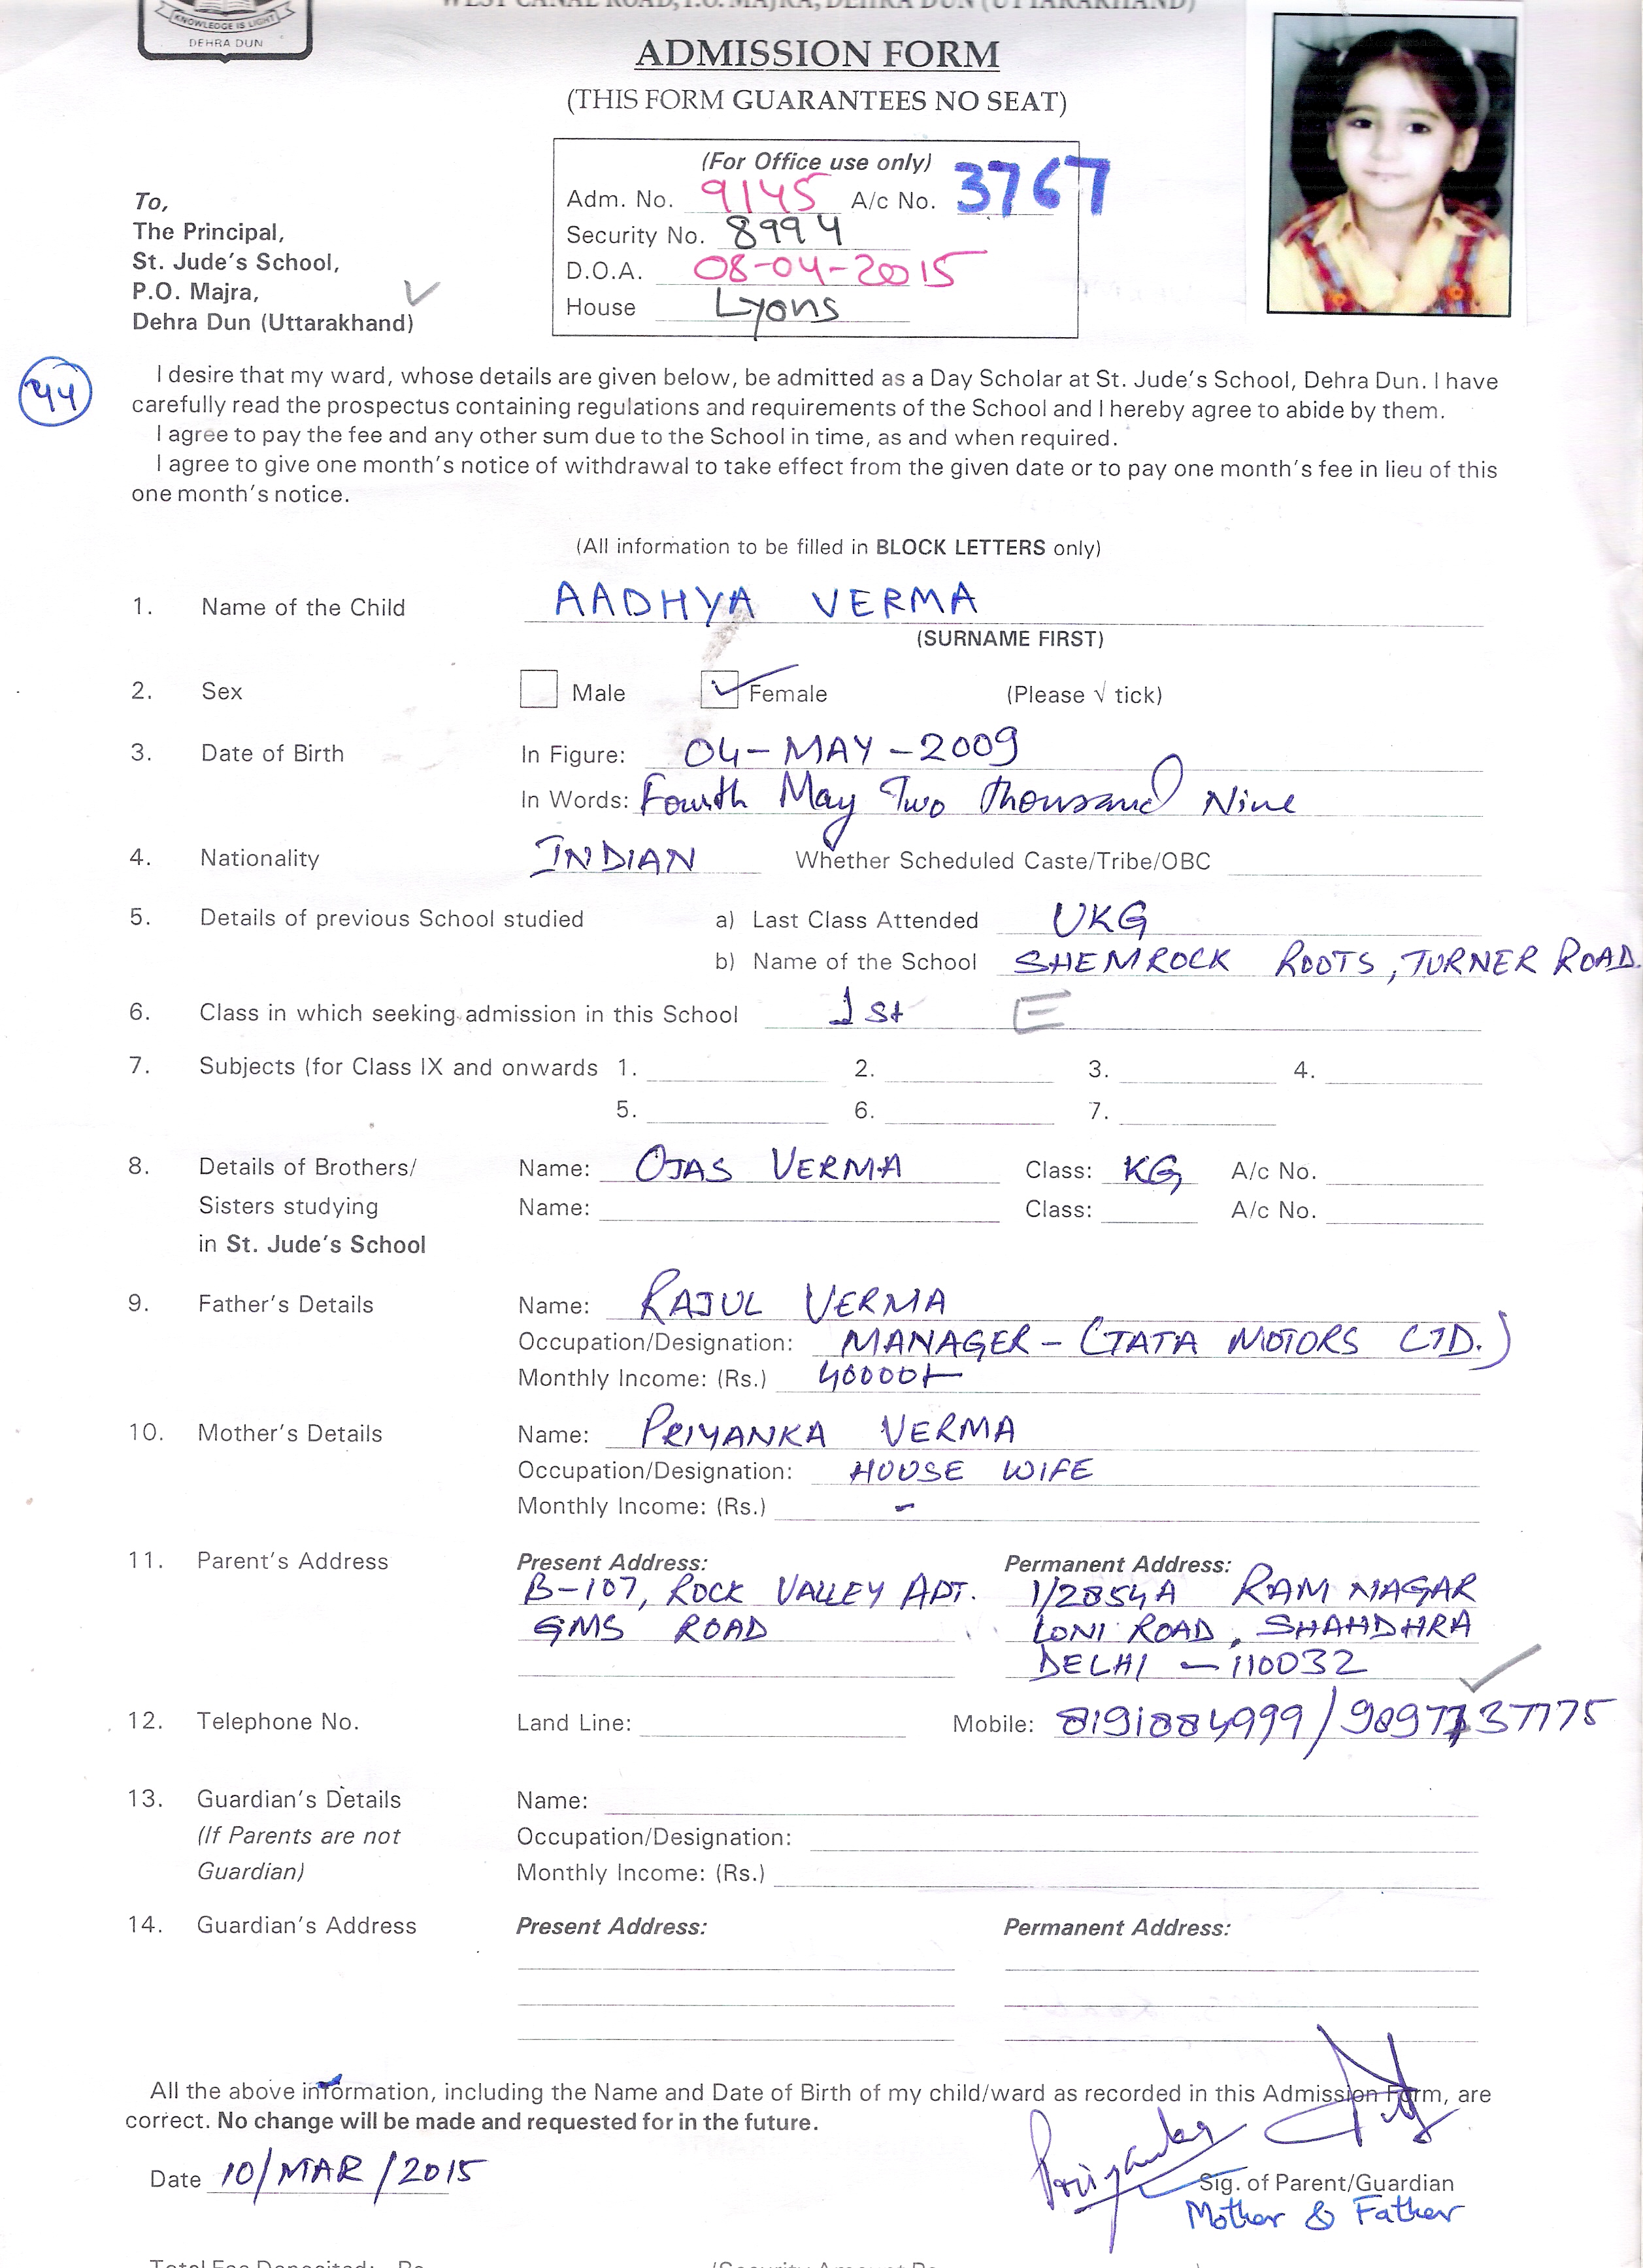 WEST CANAL ROAD, P.O. MAJRA, DEHRA DUN (UTTARAKHAND)
KNOWLEDGE IS LIGHT
DEHRA DUN
ADMISSION FORM
(THIS FORM GUARANTEES NO SEAT)
(For Office use only)
Adm. No. 9145 A/c No. 3767
Security No. 8994
D.O.A. 08-04-2015
House Lyons
To,
The Principal,
St. Jude's School,
P.O. Majra,
Dehra Dun (Uttarakhand)
44
I desire that my ward, whose details are given below, be admitted as a Day Scholar at St. Jude's School, Dehra Dun. I have
carefully read the prospectus containing regulations and requirements of the School and I hereby agree to abide by them.
I agree to pay the fee and any other sum due to the School in time, as and when required.
I agree to give one month's notice of withdrawal to take effect from the given date or to pay one month's fee in lieu of this
one month's notice.
(All information to be filled in BLOCK LETTERS only)
1. Name of the Child AADHYA VERMA
(SURNAME FIRST)
2. Sex Male ✓ Female (Please √ tick)
3. Date of Birth In Figure: 04-MAY-2009
In Words: Fourth May Two thousand Nine
4. Nationality INDIAN Whether Scheduled Caste/Tribe/OBC
5. Details of previous School studied a) Last Class Attended UKG
b) Name of the School SHEMROCK ROOTS, TURNER ROAD.
6. Class in which seeking admission in this School 1st E
7. Subjects (for Class IX and onwards 1. 2. 3. 4.
5. 6. 7.
8. Details of Brothers/ Name: OJAS VERMA Class: KG A/c No.
Sisters studying Name: Class: A/c No.
in St. Jude's School
9. Father's Details Name: RAJUL VERMA
Occupation/Designation: MANAGER - (TATA MOTORS LTD.)
Monthly Income: (Rs.) 40000/-
10. Mother's Details Name: PRIYANKA VERMA
Occupation/Designation: HOUSE WIFE
Monthly Income: (Rs.) -
11. Parent's Address Present Address: Permanent Address:
B-107, ROCK VALLEY APT. 1/2854A RAM NAGAR
GMS ROAD LONI ROAD, SHAHDHRA
DELHI - 110032
12. Telephone No. Land Line: Mobile: 8191884999/9897737775
13. Guardian's Details Name:
(If Parents are not Occupation/Designation:
Guardian) Monthly Income: (Rs.)
14. Guardian's Address Present Address: Permanent Address:
All the above information, including the Name and Date of Birth of my child/ward as recorded in this Admission Form, are
correct. No change will be made and requested for in the future.
Date 10/MAR/2015 Priyanka
Sig. of Parent/Guardian
Mother & Father